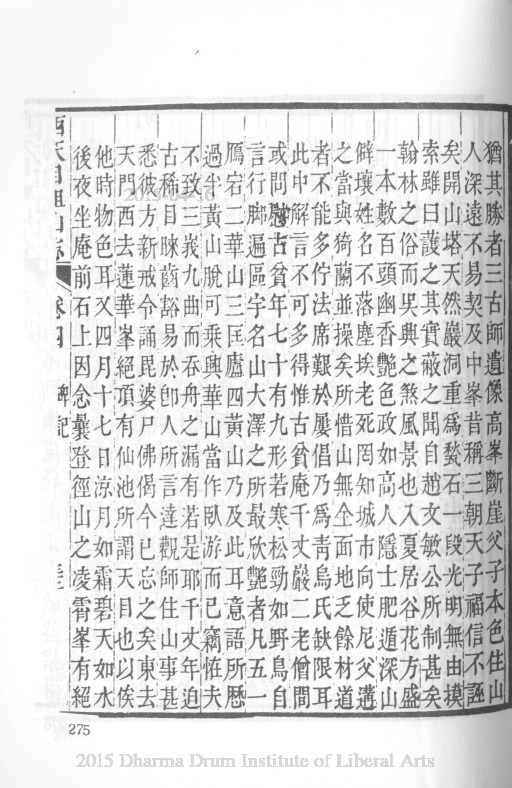 猶其勝者三古師遺像高峯斷崖父子本色住山
人深遠不易契及中峯昔稱三朝天子福信不誣
矣開山塔天然巖洞重爲甃石一段光明無由摸
索雖曰護之其實蔽之聞自趙文敏公所制甚矣
翰林之俗而吳興之煞風景也入夏居谷花方盛
一本數百頭幽香艷色政如高人隱士肥遁深山
僻壤姓名不落塵埃老死罔知城市向使尼父遘
之當與猗蘭並操矣所惜山無全面地乏餘材道
者不能多佇法席艱於屢倡乃爲靑烏氏缺限耳
此中解言不可多得惟古貧庵千丈巖二老僧間
或問慰古貧年七十有九形若寒松勁如野鳥自
言行腳遍區宇名山大澤之所最欣艷者凡五一
鴈宕二華山三匡廬四黃山乃及此耳意語所歷
過半黃山脫可乘輿華山當作臥游而已竊恠夫
不致三峩九曲而吞舟之漏有若是耶千丈年迫
古稀目睞齒豁易於卽人所言達觀師住山事甚
悉彼方新戒令誦毘婆尸佛偈今已忘之矣東去
天門西去蓮華峯絕頂有仙池所謂天目也以俟
他時物色耳又四月十七日涼月如霜碧天如水
後夜坐庵前石上因念曩登徑山之凌霄峯有絕
西天目祖山志 卷四 碑記
275
2015 Dharma Drum Institute of Liberal Arts